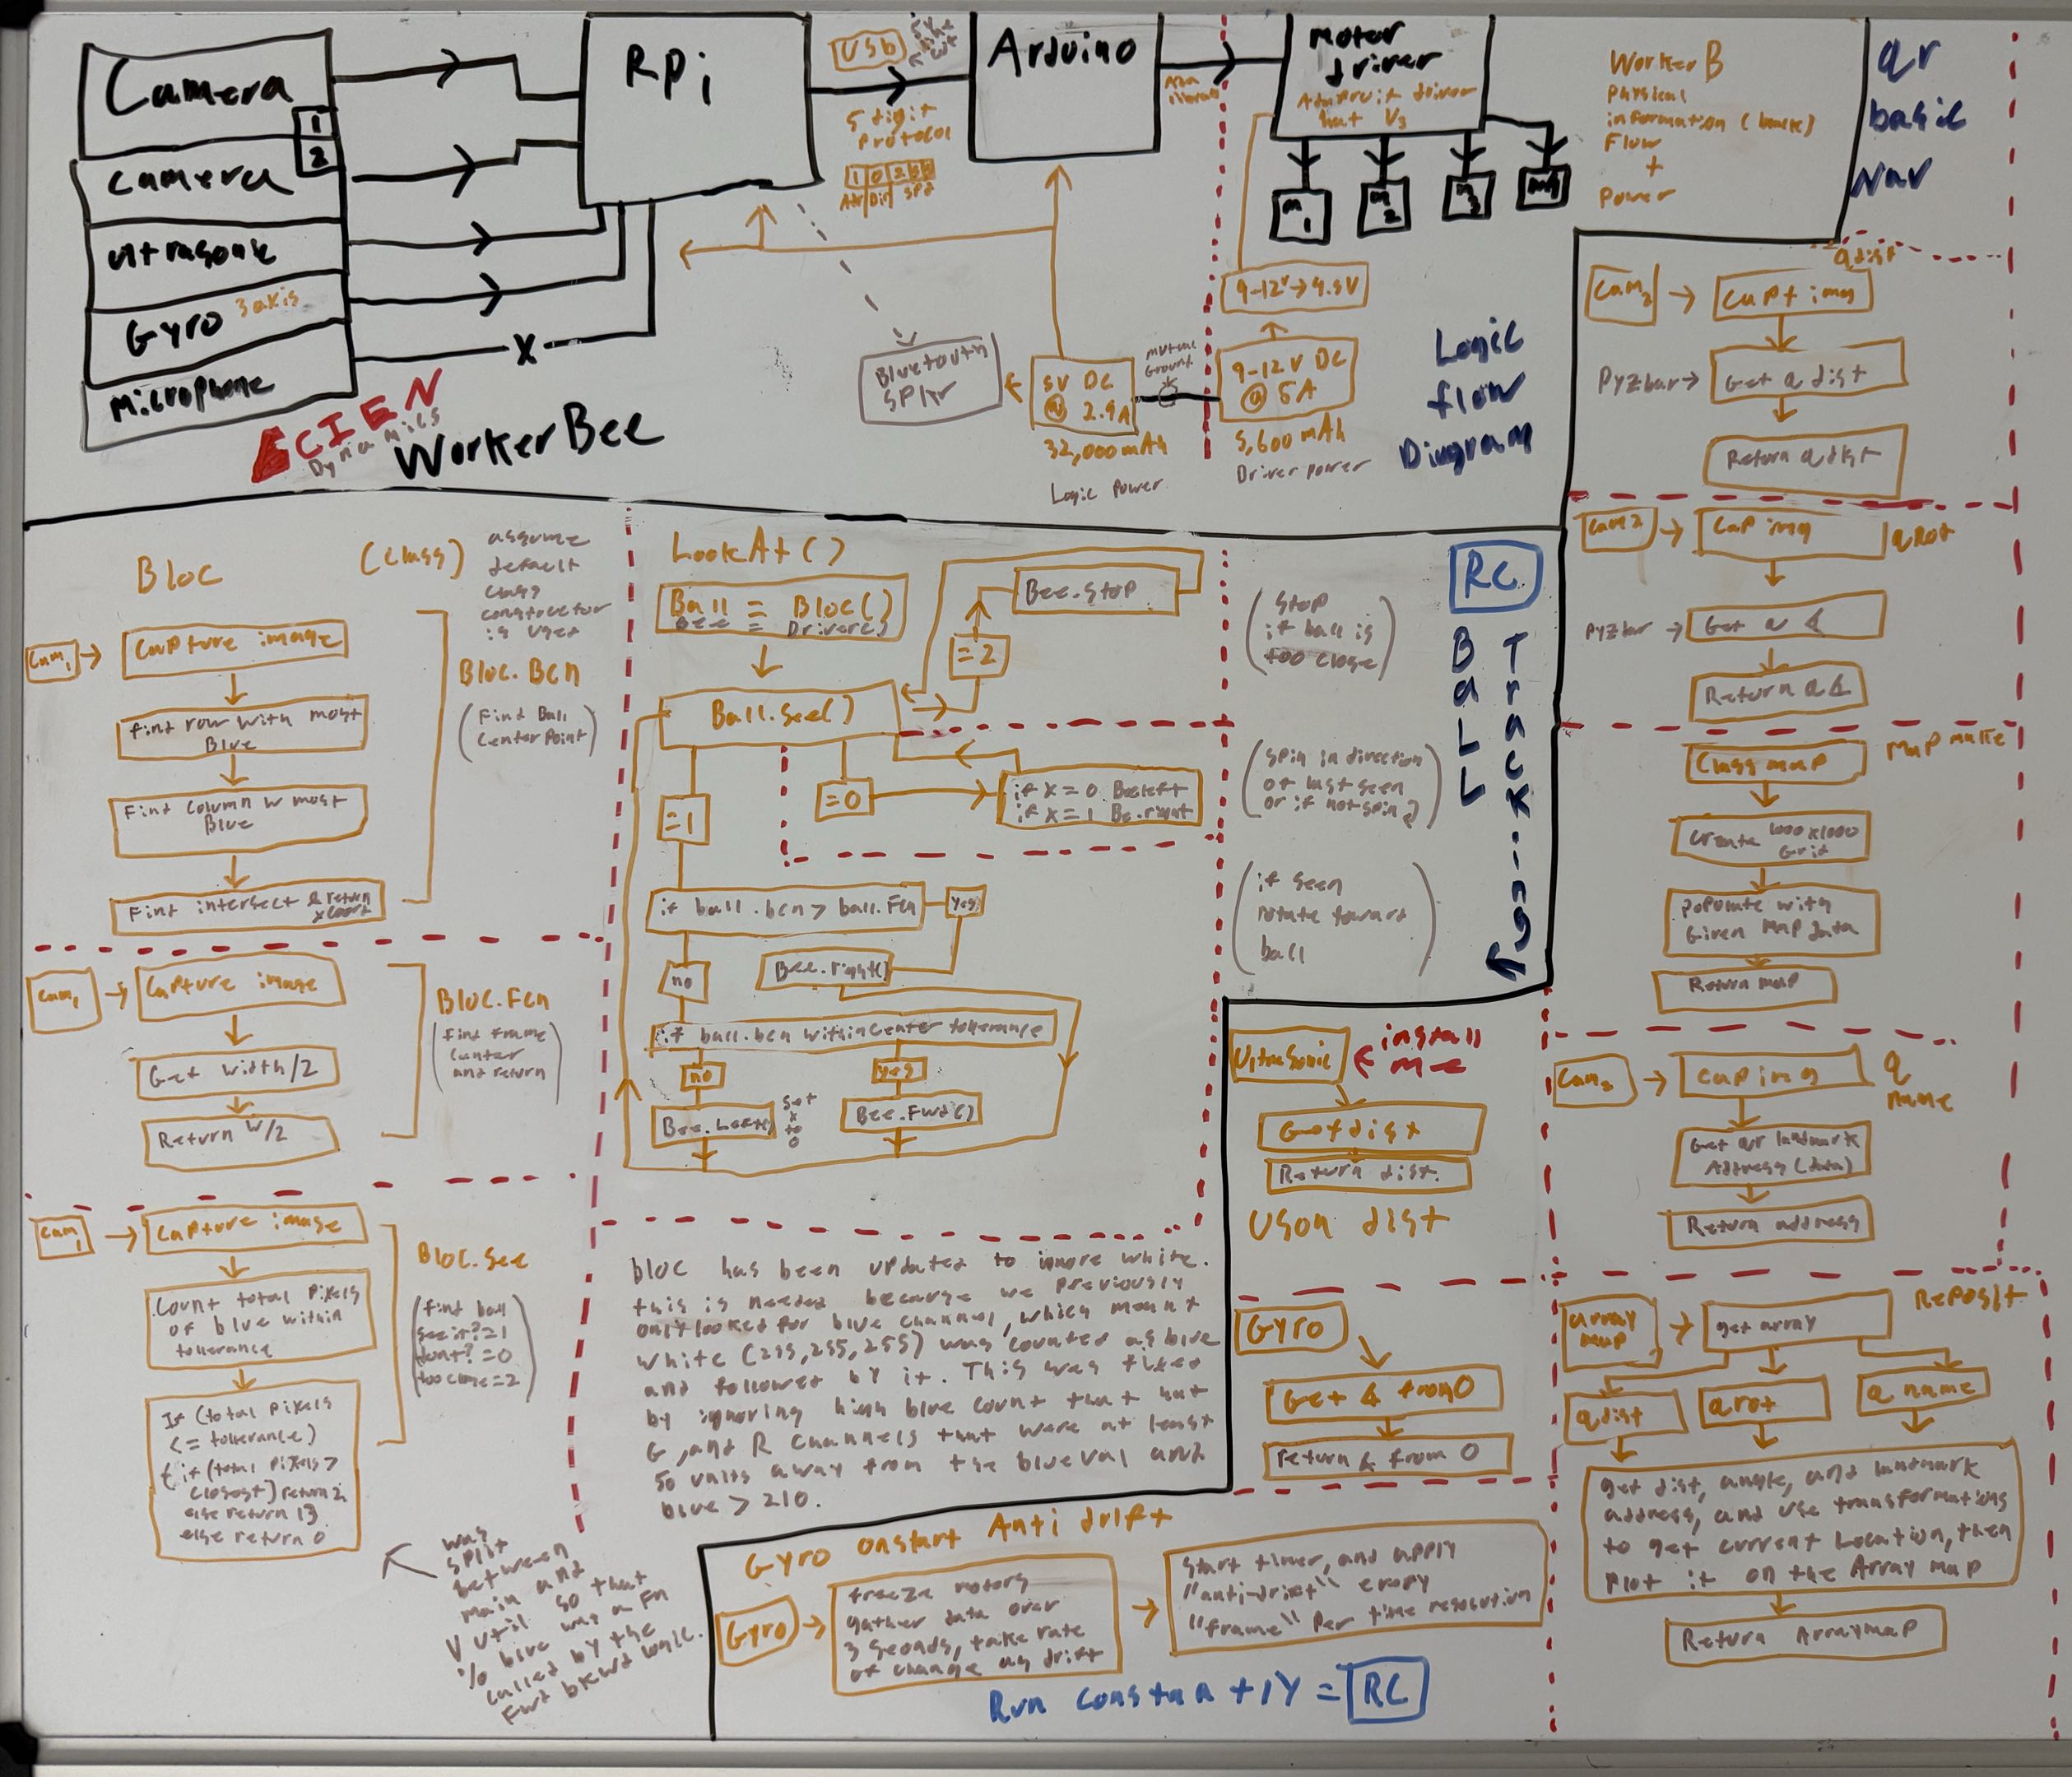 Camera
1
2
camera
ultrasonic
Gyro 3 axis
microphone
X
RPi
USb
5 digit
Protocol
1 0 2
Dir SPd
Arduino
motor
driver
Adafruit driver
hat V3
m1
m2
m3
m4
WorkerB
Physical
information (basic)
Flow
+
Power
9-12V → 9.5V
9-12V DC
@ 5A
5,600 mAh
Driver power
mutual
Ground
5V DC
@ 2.9A
32,000mAh
Logic Power
Bluetooth
SPkr
Logic
flow
Diagram
CIEN
Dynamics
WorkerBee
qr
basic
Nav
qdist
Cam2 → Capt img
PyZbar → Get q dist
Return qdist
Cam2 → Cap img
qRot
PyZbar → Get q ∡
Return q ∡
Map make
Class map
Create 1000x1000
Grid
Populate with
Given Map data
Return map
Cam2 → cap img
q
name
Get qr landmark
Address (data)
Return address
Reposit
array
map → get array
qdist
qrot
q name
get dist, angle, and landmark
address, and use transformations
to get current Location, then
Plot it on the Array map
Return Arraymap
Bloc (class)
assume
default
class
constructor
is used
Cam1 → Capture image
find row with most
Blue
Find Column w most
Blue
Find intersect & return
x coord
Bloc.Bcn
(Find Ball
Center Point)
Cam1 → Capture image
Get width/2
Return w/2
Bloc.Fcn
(find frame
center
and return)
Cam1 → Capture image
Count total Pixels
of blue within
tollerance
If (total pixels
<= tollerance)
{if (total pixels >
closest) return 2,
else return 1}
else return 0
Bloc.see
(find ball
see it? = 1
dont? = 0
too close = 2)
was
split
between
main and
Vutil so that
% blue was a Fn
called by the
Fwd bkwd logic.
LookAt()
Ball = Bloc()
Bee = Driver()
Ball.see()
Bee.stop
=2
=1
=0
if x=0 Bee.left
if x=1 Be.right
if ball.bcn > ball.Fcn
yes
no
Bee.right()
if ball.bcn within center tollerance
no
yes
Bee.Left()
set
x
to
0
Bee.Fwd()
(stop
if ball is
too close)
(spin in direction
of last seen
or if not spin)
(if seen
rotate toward
ball)
RC
BaLL
Tracking
bloc has been updated to ignore white.
this is needed because we previously
only looked for blue channel, which meant
white (255,255,255) was counted as blue
and followed by it. This was fixed
by ignoring high blue count that had
G, and R channels that were at least
50 units away from the blueval and
blue > 210.
Ultrasonic
install
me
Get dist
Return dist.
USon dist
Gyro
Get ∡ from 0
return ∡ from 0
Gyro onstart Anti drift
Gyro → freeze motors
gather data over
3 seconds, take rate
of change as drift
start timer, and apply
"anti-drift" every
"frame" per time resolution
Run constantly = RC